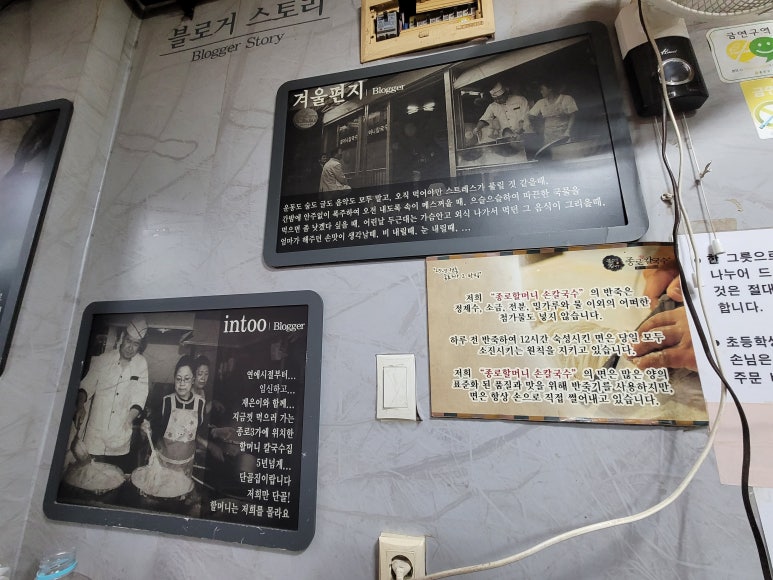 블로거 스토리
Blogger Story
겨울편지 | Blogger
운동도 술도 글도 음악도 모두 말고, 오직 먹어야만 스트레스가 풀릴 것 같을때,
간밤에 안주없이 폭주하여 오전 내도록 속이 메스꺼울 때, 으슬으슬하여 따끈한 국물을
먹으면 좀 낫겠다 싶을 때, 어린날 두근대는 가슴안고 외식 나가서 먹던 그 음식이 그리울때,
엄마가 해주던 손맛이 생각날때, 비 내릴때, 눈 내릴때, ...
intoo | Blogger
연애시절부터...
임신하고...
채은이와 함께...
지금껏 먹으러 가는
종로3가에 위치한
할머니 칼국수집
5년넘게...
단골집이랍니다
저희만 단골!
할머니는 저희를 몰라요
종로칼국수
저희 "종로할머니 손칼국수" 의 반죽은
정제수, 소금, 전분, 밀가루와 물 이외의 어떠한
첨가물도 넣지 않습니다.
하루 전 반죽하여 12시간 숙성시킨 면은 당일 모두
소진시키는 원칙을 지키고 있습니다.
저희 "종로할머니 손칼국수" 의 면은 많은 양의
표준화 된 품질과 맛을 위해 반죽기를 사용하지만,
면은 항상 손으로 직접 썰어내고 있습니다.
금연구역
한 그릇으로
나누어 드
것은 절대
합니다.
초등학생
손님은
주문